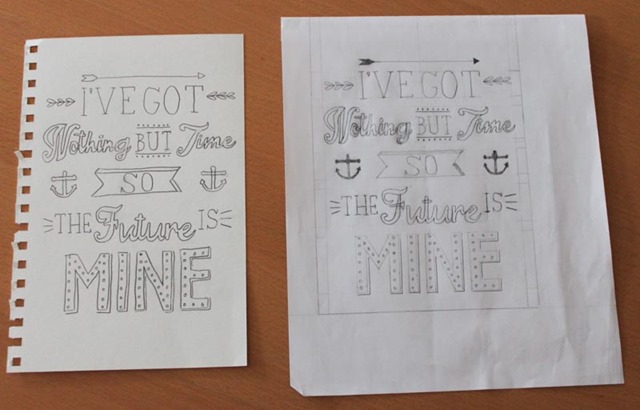 I'VE GOT
Nothing BUT Time
SO
THE Future IS
MINE
I'VE GOT
Nothing BUT Time
SO
THE Future IS
MINE